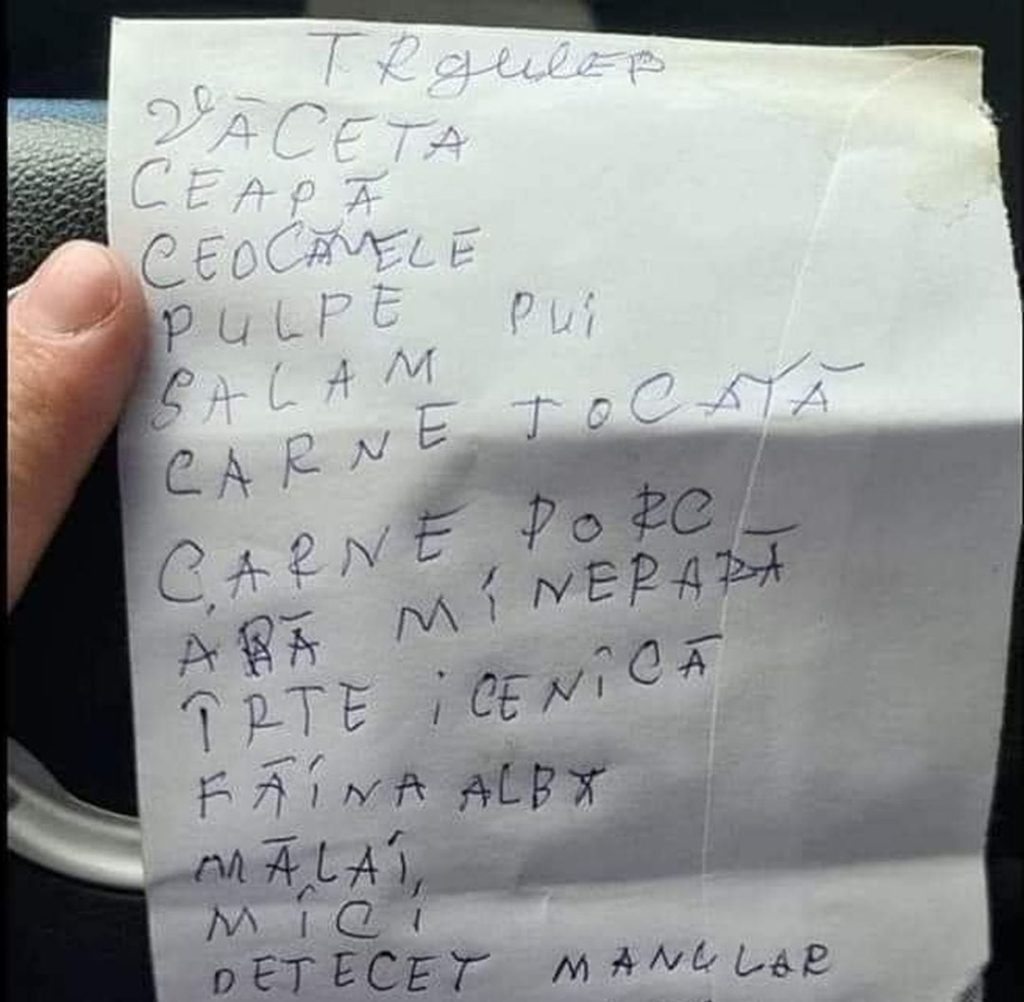 TRgULEP
2l ĀCETA
CEAPĀ
CEOCĀNELE
PULPE PUi
SALAM
CARNE TOCATĀ
CARNE PORC
APĀ MíNERARĀ
ÎRTE iCENîCĀ
FĀíNA ALBA
MĀLAí,
MîCi
DETECET MANGLAR